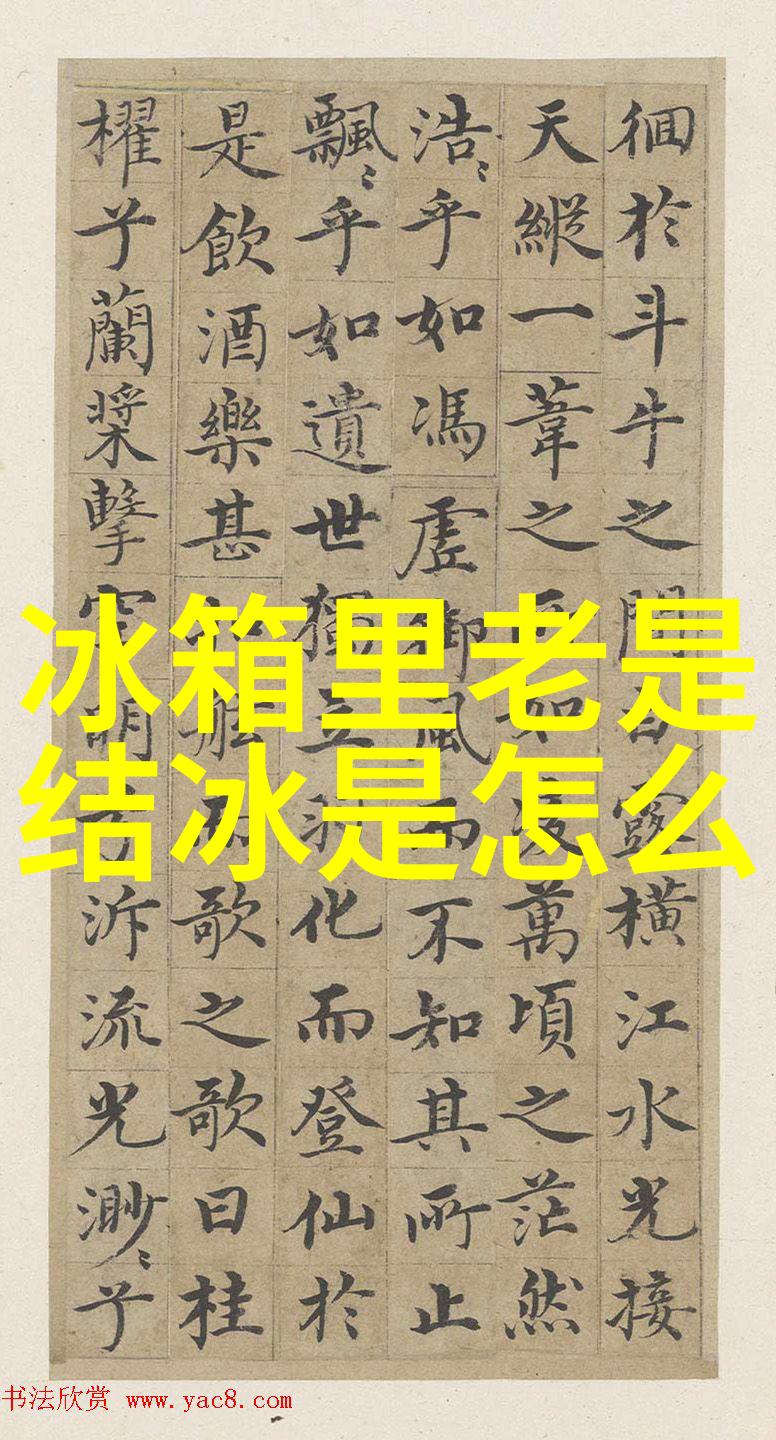 徊於斗牛之間白露橫江水光接
天縱一葦之所如凌萬頃之茫然
浩〻乎如馮虛御風而不知其所止
飄〻乎如遺世獨立羽化而登仙於
是飲酒樂甚扣舷而歌之歌曰桂
櫂兮蘭槳擊空明兮泝流光渺〻兮
冰箱里老是
结冰是怎么
书法欣赏 www.yac8.com